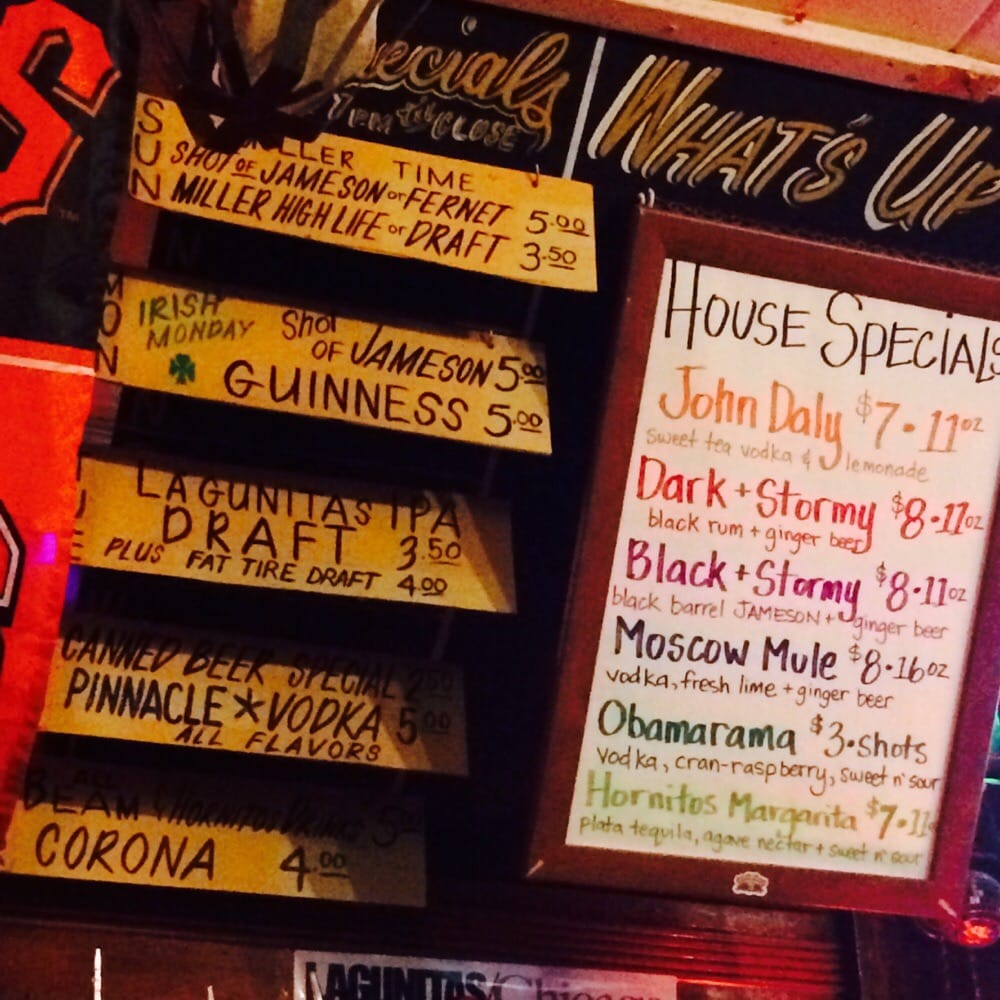 ecials
7PM till CLOSE
WHAT'S UP
SUN
LLER TIME
SHOT OF JAMESON or FERNET 5.00
MILLER HIGH LIFE or DRAFT 3.50
MON
IRISH MONDAY
Shot OF JAMESON 5.00
GUINNESS 5.00
LAGUNITAS IPA
DRAFT 3.50
PLUS FAT TIRE DRAFT 4.00
CANNED BEER SPECIAL 2.50
PINNACLE * VODKA 5.00
ALL FLAVORS
ALL
BEAM & HORNITOS DRINKS 5.00
CORONA 4.00
HOUSE SPECIALS
John Daly $7 • 11oz
sweet tea vodka & lemonade
Dark + Stormy $8 • 11oz
black rum + ginger beer
Black + Stormy $8 • 11oz
black barrel JAMESON + ginger beer
Moscow Mule $8 • 16oz
vodka, fresh lime + ginger beer
Obamarama $3 • shots
vodka, cran-raspberry, sweet n' sour
Hornitos Margarita $7 • 11
plata tequila, agave nectar + sweet n' sour
LAGUNITAS/Chicago
S
TM